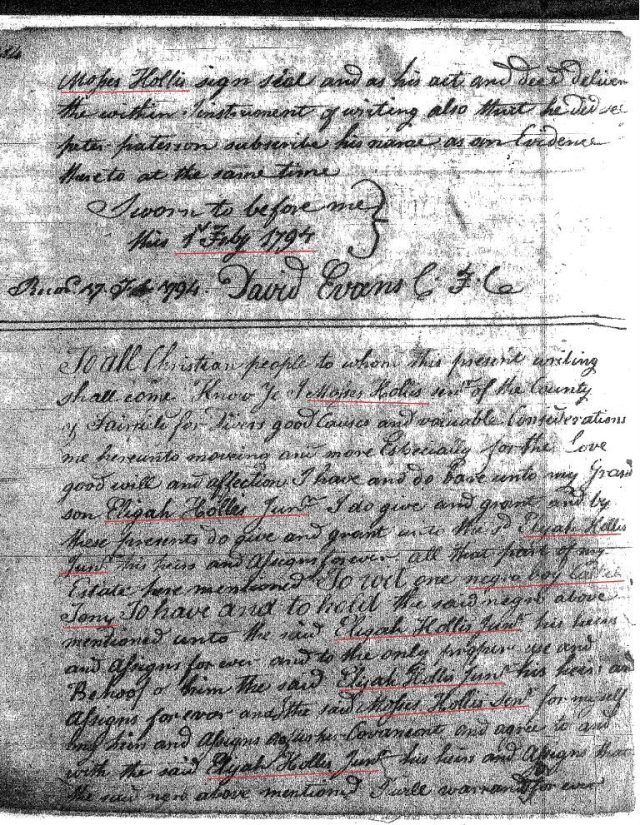 Moses Hollis sign seal and as his act and deed deliver
the within instrument of writing also that he did see
peter paterson subscribe his name as an Evidence
thereto at the same time
Sworn to before me
this 1st Feby 1794
Recd. 17 Feb 1794. David Evans C F C
To all Christian people to whom this present writing
shall come Know Ye I Moses Hollis senr. of the County
of Fairfield for Divers good Causes and valuable Considerations
me hereunto moving and more Especially for the love
good will and affection I have and do bare unto my Grand
son Elijah Hollis Junr. I do give and grant and by
these presents do give and grant unto the sd Elijah Hollis
Junr. his heirs and assigns forever all that part of my
Estate here mentioned To wit one negro boy Called
Tony To have and to hold the said negro above
mentioned unto the said Elijah Hollis Junr. his heirs
and assigns for ever and to the only proper use and
Behoof of him the said Elijah Hollis Junr. his heirs and
assigns for ever and the said Moses Hollis Senr. for myself
my heirs and assigns Covenant and agree to and
with the said Elijah Hollis Junr. his heirs and assigns that
the said negro above mentioned I will warrant for ever